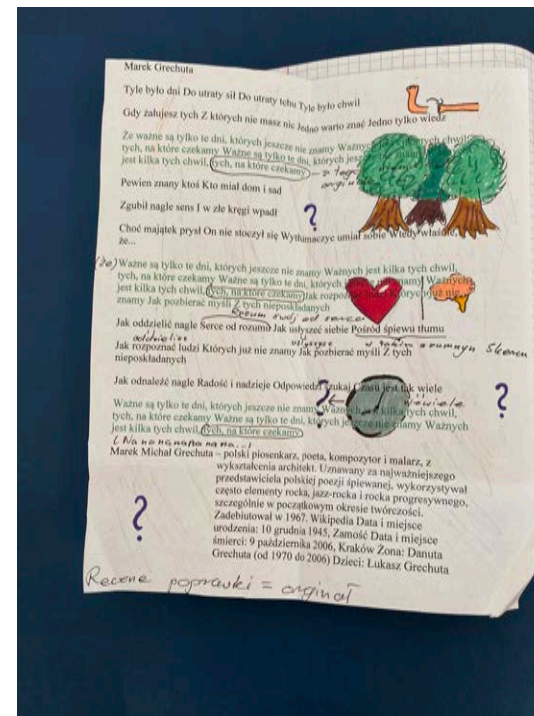 Marek Grechuta
Tyle było dni Do utraty sił Do utraty tchu Tyle było chwil
Gdy żałujesz tych Z których nie masz nic Jedno warto znać Jedno tylko wiedz
Że ważne są tylko te dni, których jeszcze nie znamy Ważnych jest kilka tych chwil,
tych, na które czekamy Ważne są tylko te dni, których jeszcze nie znamy
jest kilka tych chwil, tych, na które czekamy
Pewien znany ktoś Kto miał dom i sad
Zgubił nagle sens I w złe kręgi wpadł
?
Choć majątek prysł On nie stoczył się Wytłumaczyć umiał sobie Wtedy właśnie,
że...
(że) Ważne są tylko te dni, których jeszcze nie znamy Ważnych jest kilka tych chwil,
tych, na które czekamy Ważne są tylko te dni, których jeszcze nie znamy Ważnych
jest kilka tych chwil, tych, na które czekamy Jak rozpoznać ludzi Których już nie
znamy Jak pozbierać myśli Z tych nieposkładanych
Rozum swój od serca
Jak oddzielić nagle Serce od rozumu Jak usłyszeć siebie Pośród śpiewu tłumu
oddzielisz usłyszysz w takim szumnym
Jak rozpoznać ludzi Których już nie znamy Jak pozbierać myśli Z tych
nieposkładanych
Jak odnaleźć nagle Radość i nadzieję Odpowiedzi szukaj Czasu jest tak wiele
? ←
niewiele
?
Ważne są tylko te dni, których jeszcze nie znamy Ważnych jest kilka tych chwil,
tych, na które czekamy Ważne są tylko te dni, których jeszcze nie znamy Ważnych
jest kilka tych chwil, tych, na które czekamy
(Na na na na na na na...)
Marek Michał Grechuta – polski piosenkarz, poeta, kompozytor i malarz, z
wykształcenia architekt. Uznawany za najważniejszego
przedstawiciela polskiej poezji śpiewanej, wykorzystywał
często elementy rocka, jazz-rocka i rocka progresywnego,
szczególnie w początkowym okresie twórczości.
Zadebiutował w 1967. Wikipedia Data i miejsce
urodzenia: 10 grudnia 1945, Zamość Data i miejsce
śmierci: 9 października 2006, Kraków Żona: Danuta
Grechuta (od 1970 do 2006) Dzieci: Łukasz Grechuta
?
Ręczne poprawki = orginał